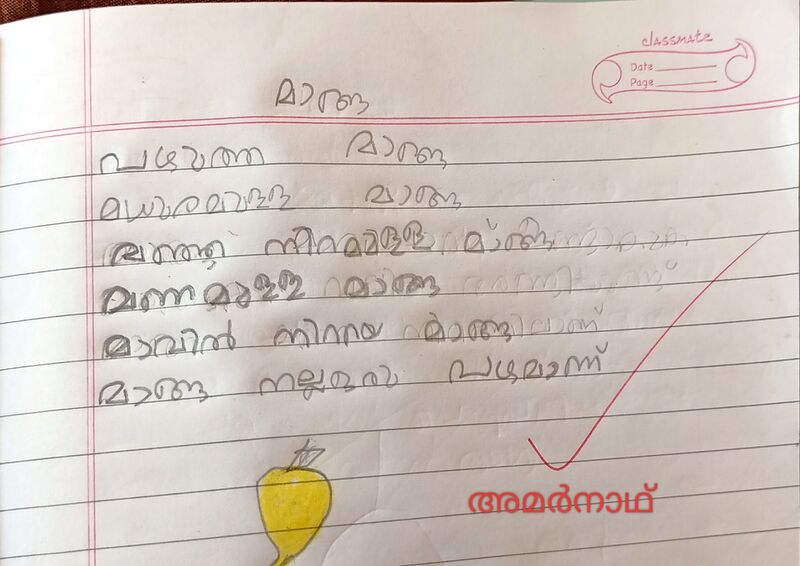 classmate
Date
Page
മാങ്ങ
പഴുത്ത മാങ്ങ
മധുരമുള്ള മാങ്ങ
മഞ്ഞ നിറമുള്ള മാങ്ങ
മണമുള്ള മാങ്ങ
മാവിൽ നിറയെ മാങ്ങ
മാങ്ങ നല്ലൊരു പഴമാണ്
അമർനാഥ്